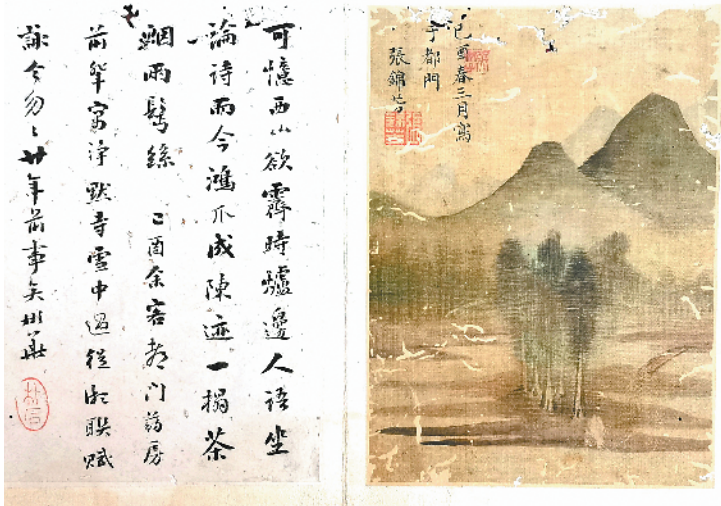 己酉春三月寫
于都門
張錦芳
可憶西山欲霽時爐邊人語坐
論詩而今鴻爪成陳迹一榻茶
烟兩鬢絲 己酉余客都門葯房
前輩寓淨默寺雪中過從聯賦
詠今勿〻廿年前事矣彬華
朴石